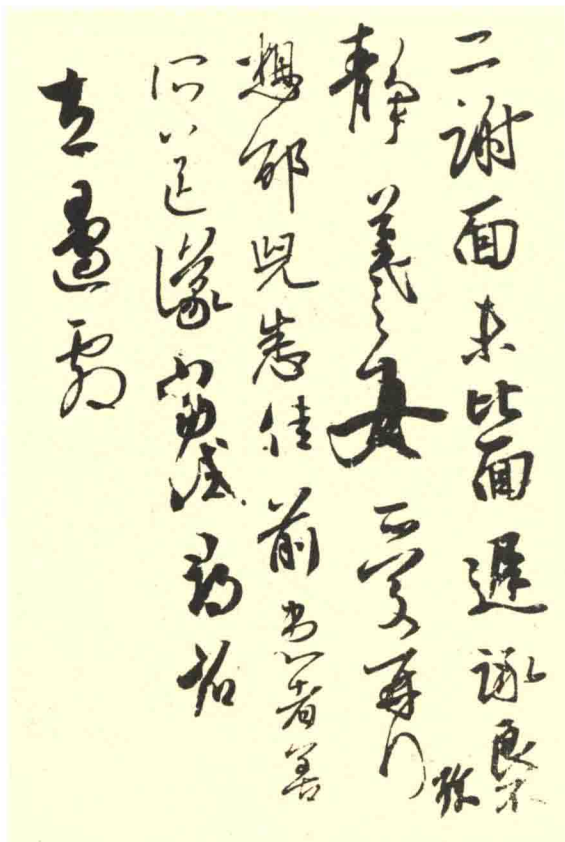 二謝面未比面遲詠良不
珍
靜羲之女愛再拜
想邵兒悉佳前患者善
所送議當試尋省
左邊劇